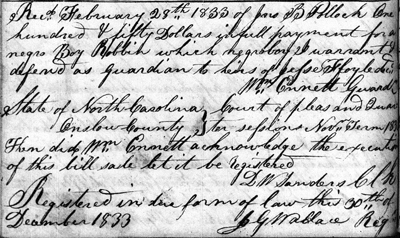 Recd. February 28th 1833 of Jno B Pollock One
hundred & fifty Dollars in full payment for a
negro Boy Robbin which negro boy I warrant &
defend as guardian to heirs of Jesse
Wm Ennett Guard
State of North Carolina } Court of pleas and Quar
Onslow County } ter sessions Novr Term 18
Then did Wm Ennett acknowledge the execution
of this bill sale let it be registered
D W Sanders Clk
Registered in due form of law this 30th of
December 1833 J G Wallace Reg